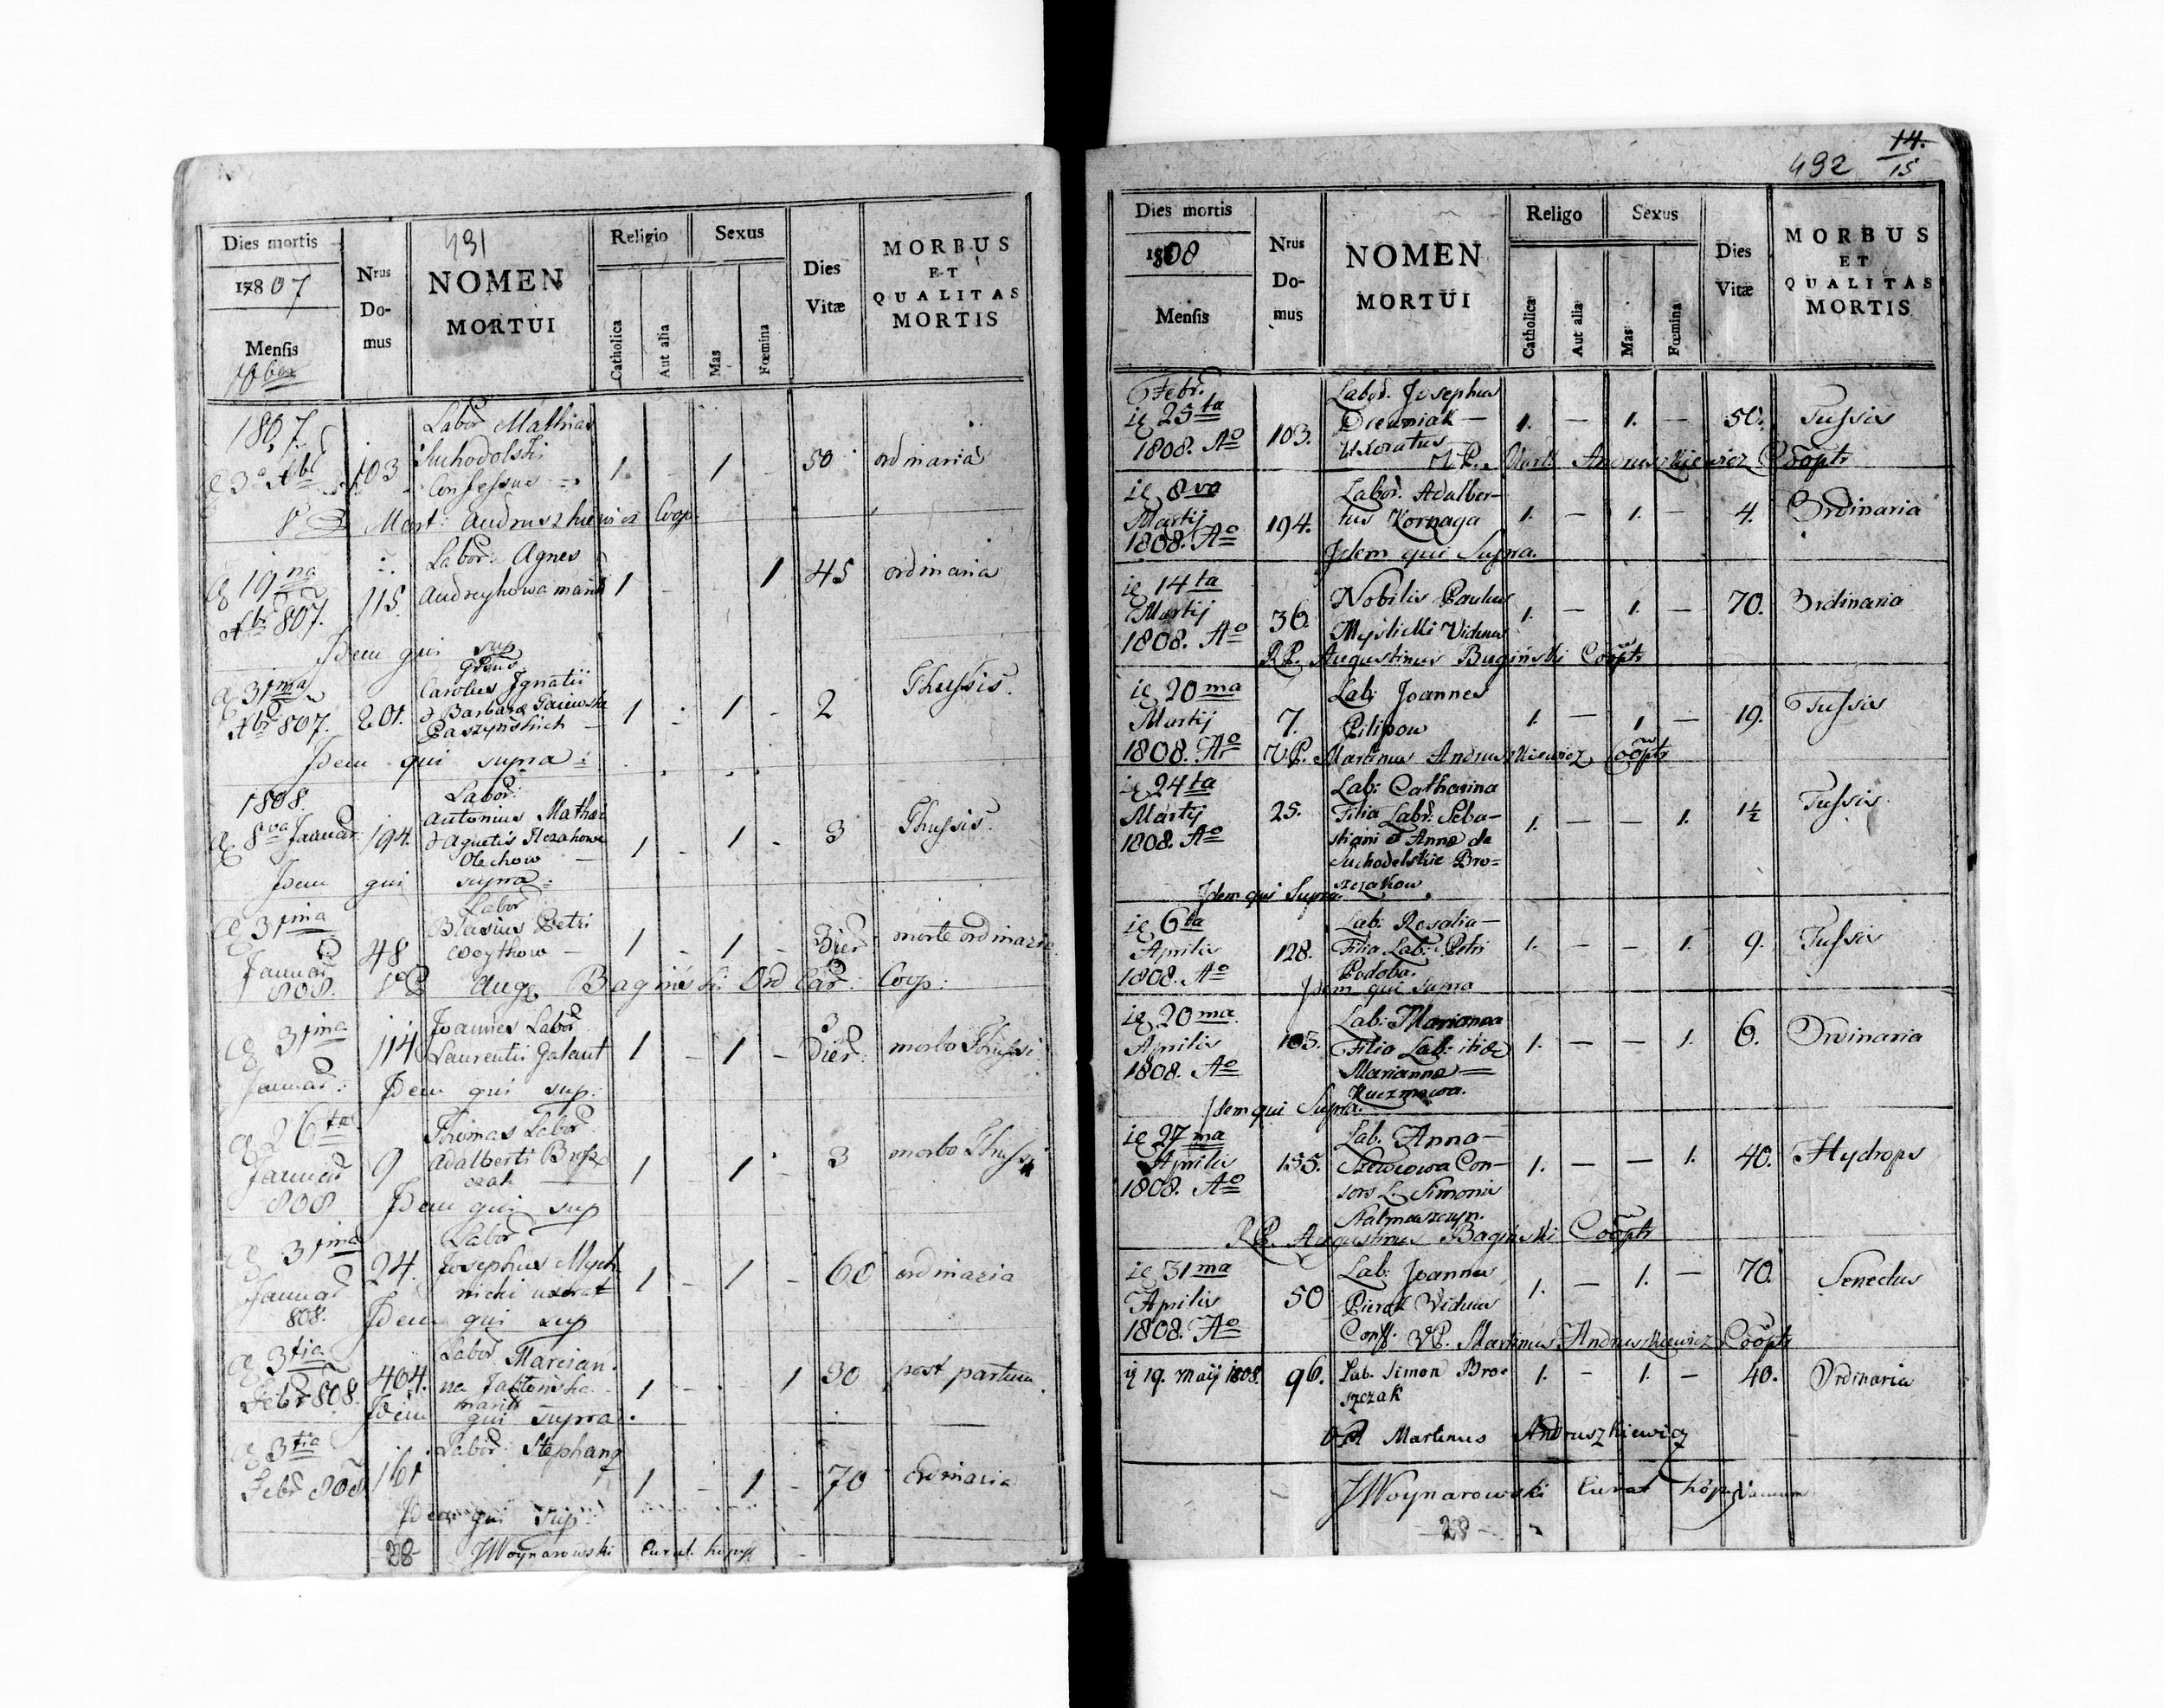 Dies mortis
17807
Mensis
Nrus
Do-
mus
491
NOMEN
MORTUI
Religio
Catholica
Aut alia
Sexus
Mas
Fœmina
Dies
Vitæ
MORBUS
ET
QUALITAS
MORTIS
1807.
Labor Mathias
Suchodolski
Confessus
103 1 - 1 - 50 ordinaria
Mart: Andruszkiewicz Coop:
19na
807. 115.
Labor: Agnes
1 - - 1 45 ordinaria
Idem qui sup
31ma
Xbr 807. 201.
Carolus Ignatii
& Barbara
Paszyńskich
1 - 1 - 2 Thussis.
Idem qui supra
1808.
8va Januar 194.
Labor:
Antonius
& Agnetis
Olechow
1 - 1 - 3 Thussis.
Idem qui supra
31ma
Januar
808. 48
Labor
Blasius Petri
Woythow
1 - 1 - morte ordinaria
Aug Baginski Ord Car: Coop:
31ma
Januar: 114
Joannes Labor
Laurentii Galant
1 - 1 - 3
Dier: morbo Thussi
Idem qui sup:
26ta
Januar
808 9
Thomas Labor
Adalberti Brosz
czak
1 - 1 - 3 morbo Thussi
Idem qui sup
31ma
Januar
808. 24.
Labor
Josephus
uxorat
1 - 1 - 60 ordinaria
Idem qui sup
3tia
Febr 808. 404.
Labor Marcian
na
marit
1 - - 1 30 post partum
Idem qui supra
3tia
Febr 808 161
Labor: Stephang
1 - 1 - 70 ordinaria
Idem qui sup:
28 JWoynarowski Curat.
492 14.
15
Dies mortis
1808
Mensis
Nrus
Do-
mus
NOMEN
MORTUI
Religo
Catholica
Aut alia
Sexus
Mas
Fœmina
Dies
Vitæ
MORBUS
ET
QUALITAS
MORTIS
Febr.
25ta
1808. Ao 103.
Labor. Josephus
Drewniak —
Uxoratus
1. — 1. — 50. Tussis
V P. Mart Andruszkiewicz Cooptr
8va
Martij
1808. Ao 194.
Labor. Adalber-
tus Kornaga
1. — 1. — 4. Ordinaria
Idem qui Supra.
14ta
Martij
1808. Ao 36.
Nobilis Paulus
Myślicki Viduus
1. — 1. — 70. Ordinaria
RP. Augustinus Bugiński Cooptr
20ma
Martij
1808. Ao 7.
Lab: Joannes
Pilipow
1. — 1. — 19. Tussis
VP. Martinus Andruszkiewicz Cooptr
24ta
Martij
1808. Ao 25.
Lab: Catharina
Filia Labr. Seba-
stiani & Anna de
Suchodolskie Bro=
szczakow
1. — — 1. 1½ Tussis.
Idem qui Supra.
6ta
Aprilis
1808. Ao 128.
Lab: Rosalia —
Filia Lab: Petri
Podoba.
1. — — 1. 9. Tussis
Idem qui Supra
20ma
Aprilis
1808. Ao 105.
Lab: Marianna
Filia Lab:
Marianna
Kuczmowa.
1. — — 1. 6. Ordinaria
Idem qui Supra.
27ma
Aprilis
1808. Ao 155.
Lab. Anna —
Szewcowa Con-
sors L. Simonis
1. — — 1. 40. Hydrops
RP. Augustinus Bagiński Cooptr
31ma
Aprilis
1808. Ao 50
Lab: Joannes
Pierak Viduus
Conf.
1. — 1. — 70. Senectus
VP. Martinus Andruszkiewicz Cooptr
19. Maij 1808. 96.
Lab. Simon Bro=
szczak
1. - 1. - 40. Ordinaria
Martinus Andruszkiewicz
JWoynarowski Curat
28